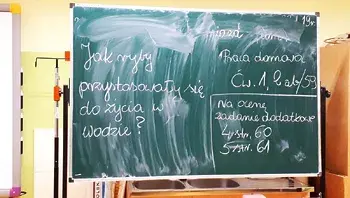 Jak ryby
przystosowały się
do życia w
wodzie?
Praca domowa
Ćw. 1, 2 ab/59
Na ocenę
zadanie dodatkowe
4, str. 60
5 str. 61